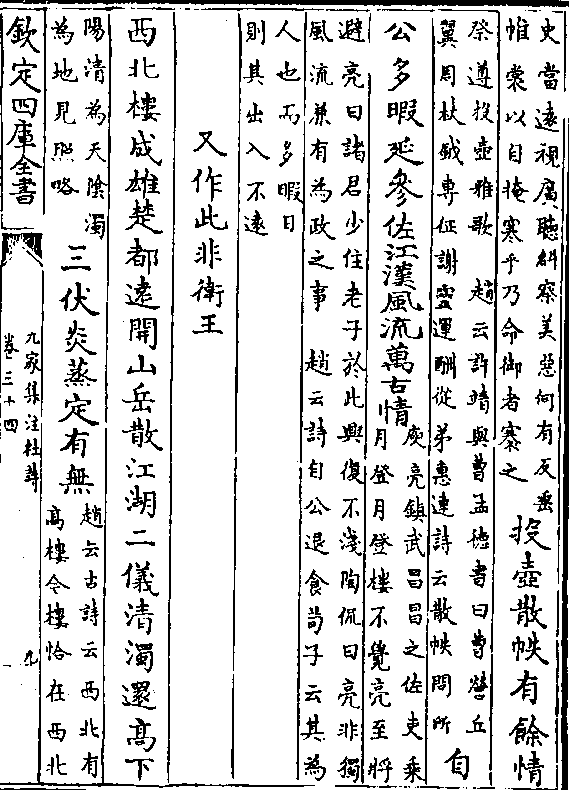 史當遠視廣聽糾察美惡何有反垂
帷裳以自掩塞乎乃命御者褰之
投壺散帙有餘情
祭遵投壺雅歌 趙云許靖與曹孟德書曰曹營丘
翼周杖鉞專征謝靈運酬從弟惠連詩云散帙問所
自
公多暇延參佐江漢風流萬古情
庾亮鎮武昌昌之佐吏乘
月登月登樓不覺亮至將
避亮曰諸君少住老子於此興復不淺陶侃曰亮非獨
風流兼有為政之事 趙云詩自公退食荀子云其為
人也而多暇日
則其出入不遠
又作此非衛王
西北樓成雄楚都遠開山岳散江湖二儀清濁還高下
陽清為天陰濁
為地見照略
三伏炎蒸定有無
趙云古詩云西北有
高樓今樓恰在西北
欽定四庫全書
九家集注杜詩
卷三十四
九